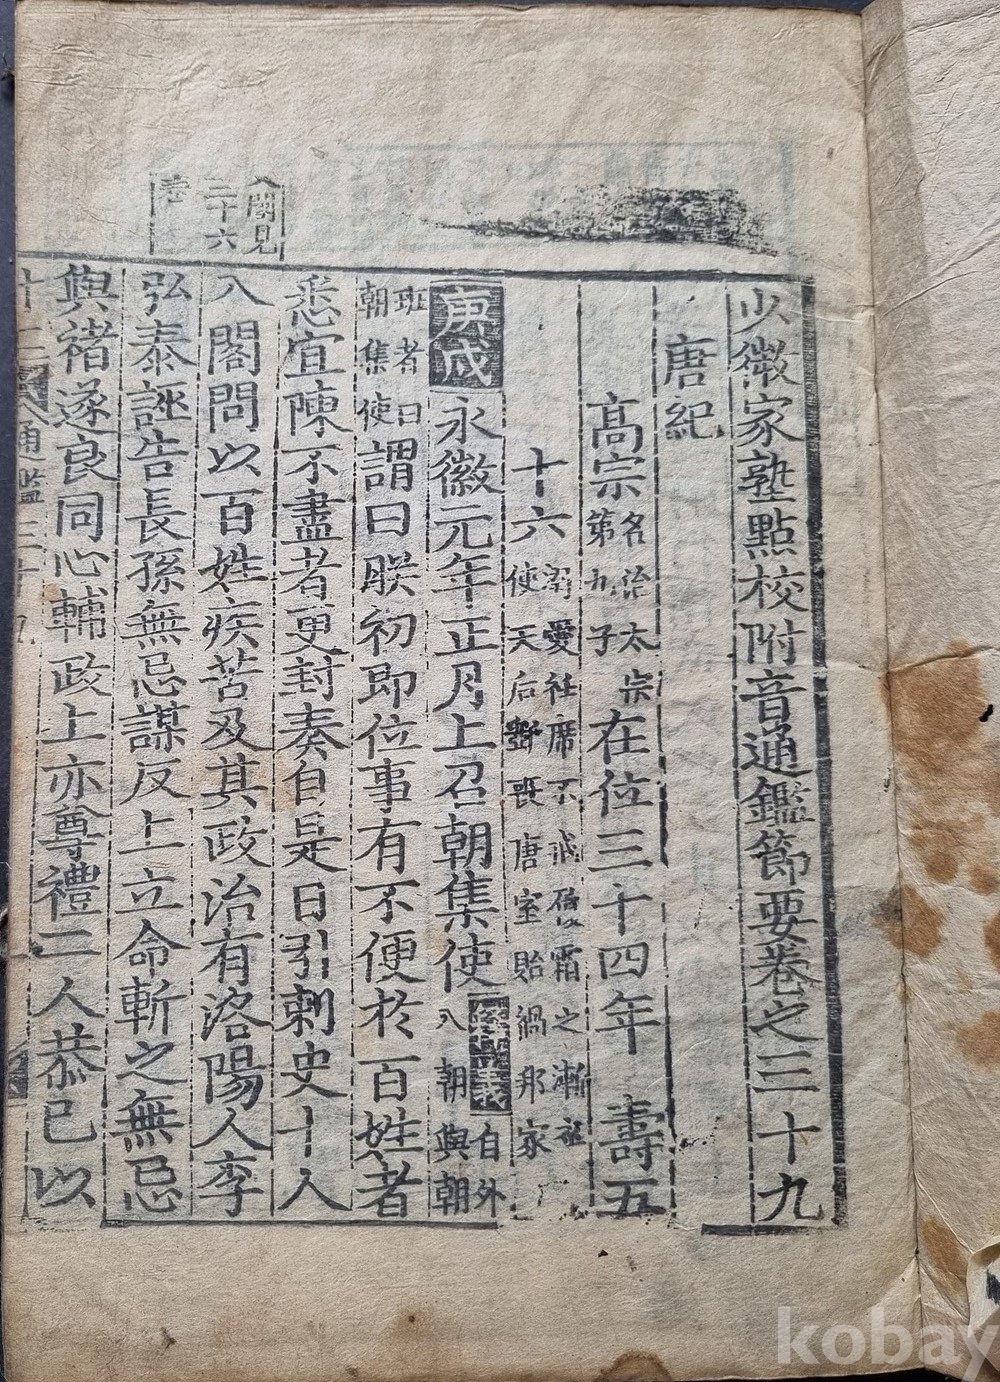 少微家塾點校附音通鑑節要卷之三十九
唐紀
高宗名治太宗第九子在位三十四年 壽五
十六溺愛衽席不戒履霜之漸使天后斲喪唐室貽禍邦家
庚戌永徽元年正月上召朝集使自外入朝與朝
班者曰朝集使謂曰朕初即位事有不便於百姓者
悉宜陳不盡者更封奏自是日引刺史十人
入閤問以百姓疾苦及其政治有洛陽人李
弘泰誣告長孫無忌謀反上立命斬之無忌
與褚遂良同心輔政上亦尊禮二人恭己以
通鑑三十九
入閤見
二十六
kobay